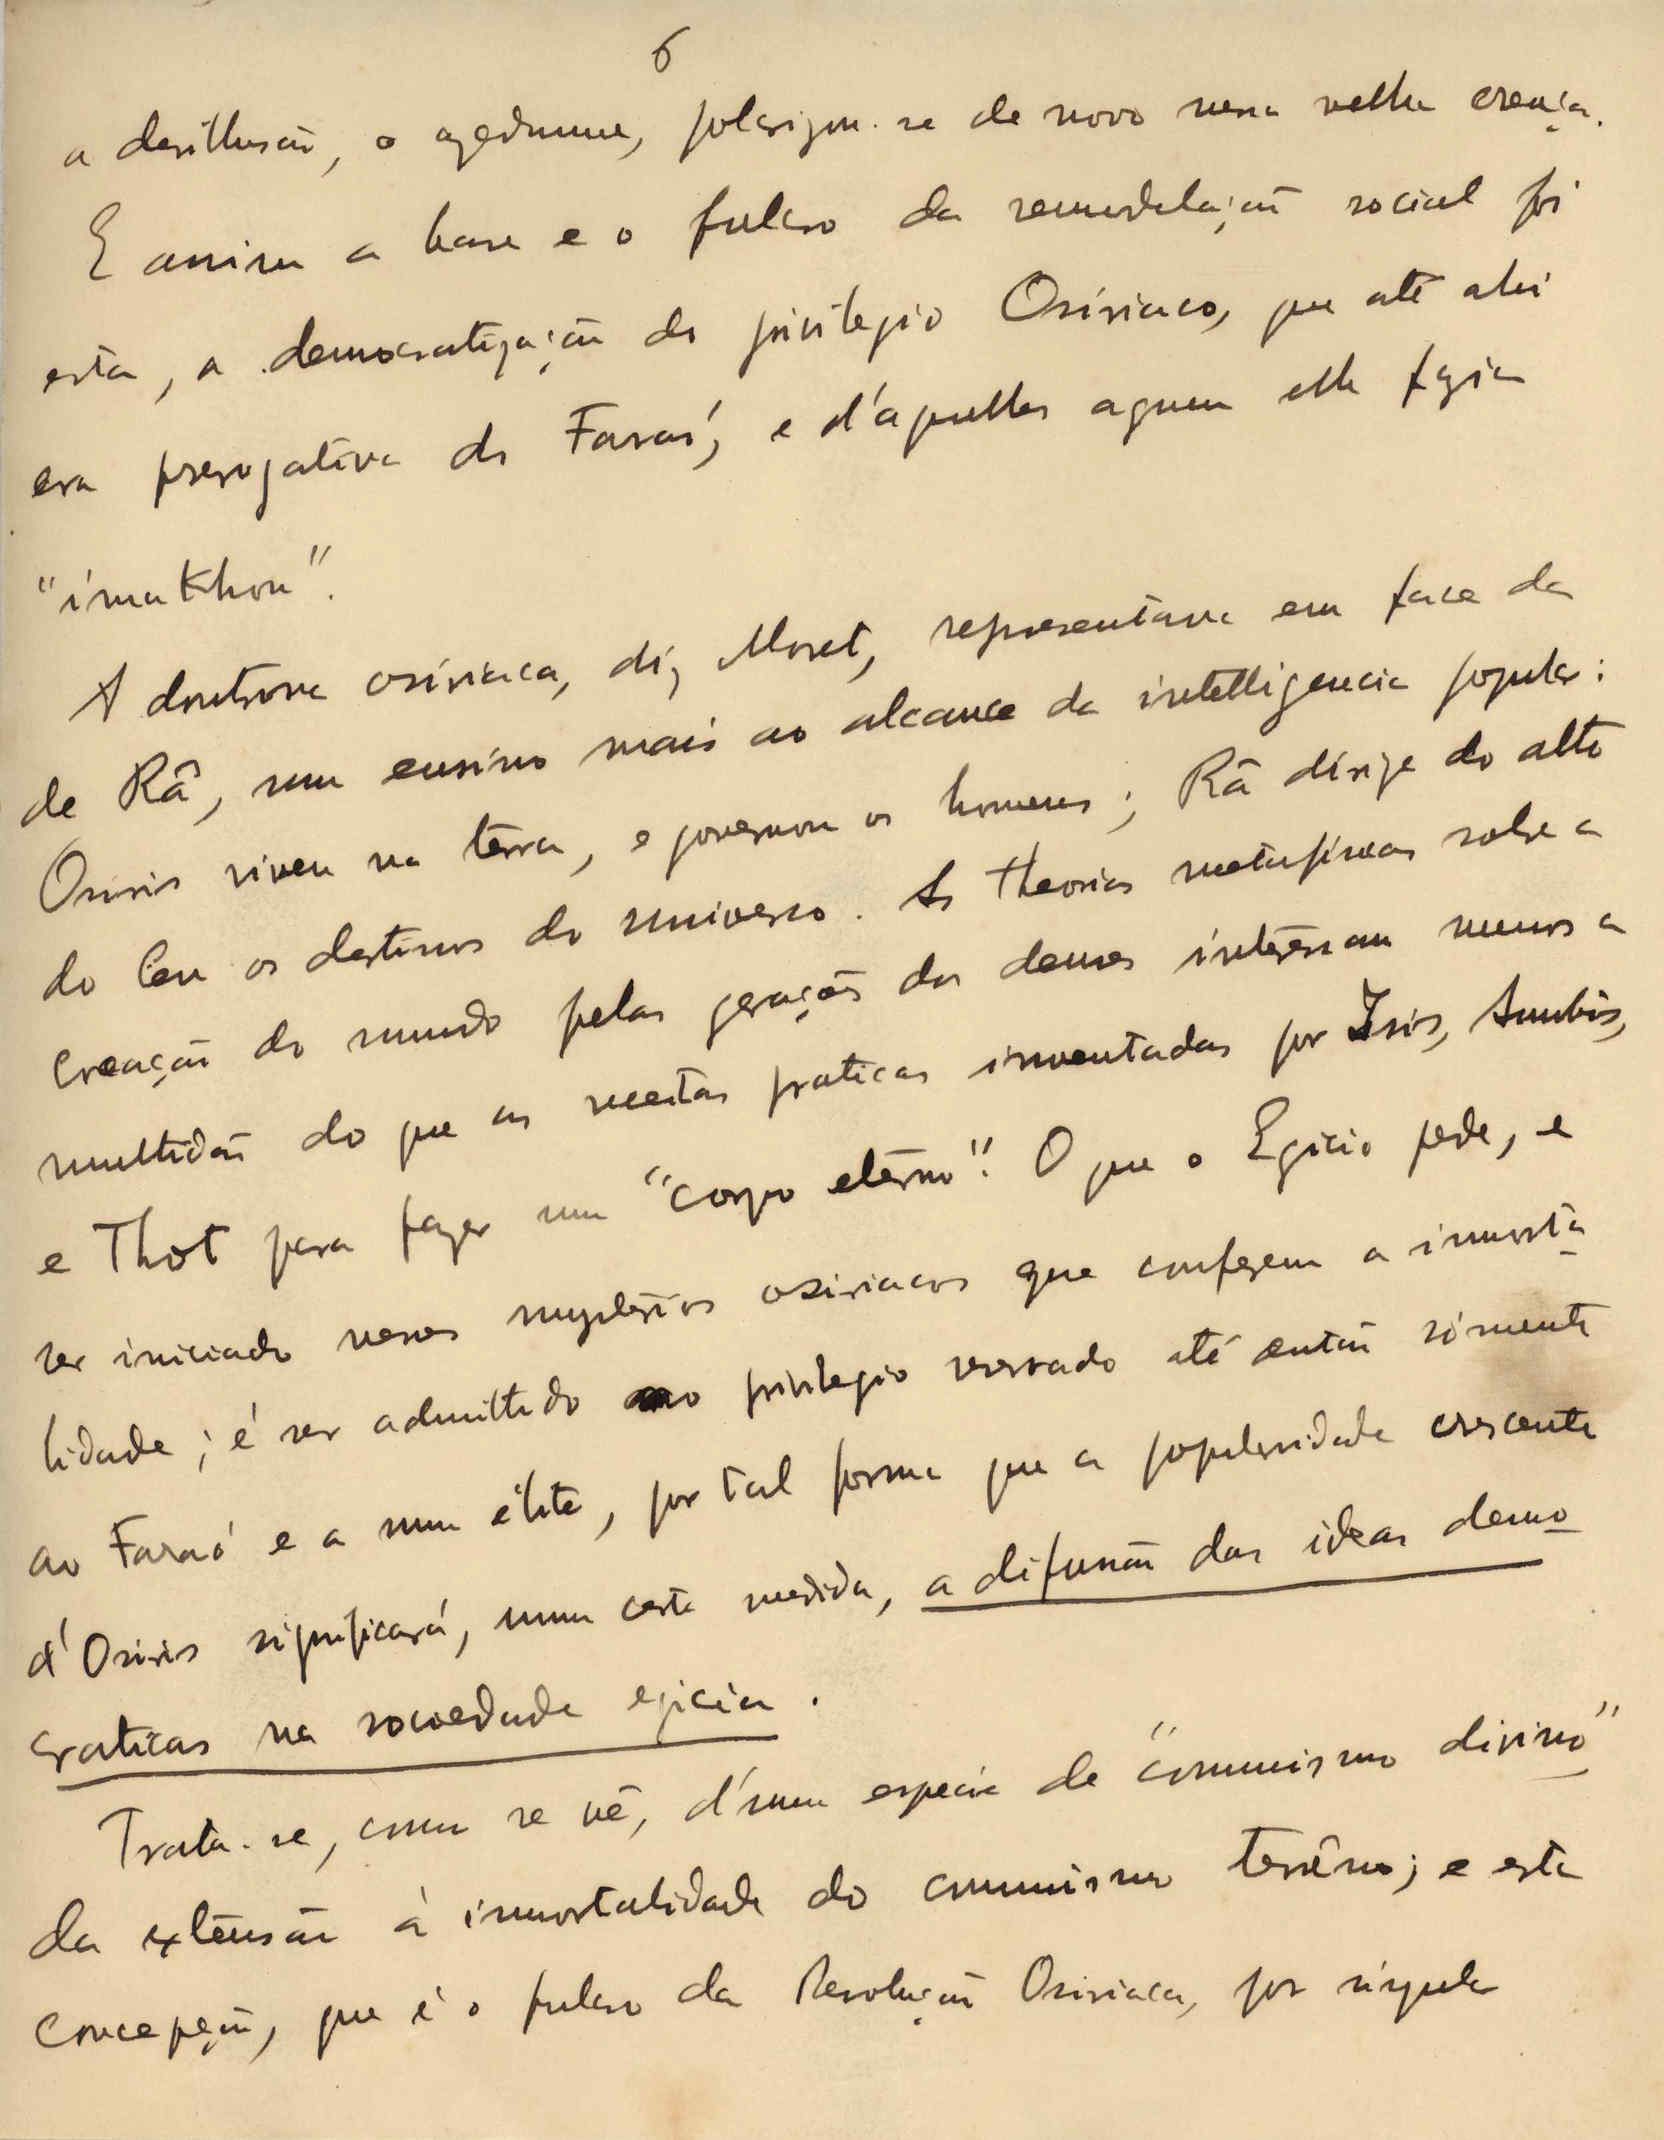 6
a desillusão, o azedume, polarizou-se de novo nessa velha crença.
E assim a base e o fulcro da remodelação social foi
esta, a democratização do privilegio Osiriaco, que até ahi
era prerogativa do Faraó, e d'aquelles a quem elle fazia
"imakhou".
A doutrina osiriaca, diz Moret, representava em face da
de Râ, um ensino mais ao alcance da intelligencia popular:
Osiris viveu na terra, e governou os homens; Râ dirige do alto
do Ceu os destinos do universo. As theorias metafisicas sobre a
Creação do mundo pelas gerações dos deuses interessam menos a
multidão do que as receitas praticas inventadas por Isis, Anubis,
e Thot para fazer um "corpo eterno". O que o Egicio pede, e
ser iniciado nesses mysterios osiriacos que conferem a immorta
lidade; é ser admittido ao privilegio reservado até então sómente
ao Faraó e a uma élite, por tal forma que a popularidade crescente
d'Osiris significará, numa certa medida, a difusão das ideas demo
craticas na sociedade egicia.
Trata-se, como se vê, d'uma especie de "communismo divino"
da extensão á immortalidade do communismo terrêno; e esta
concepção, que é o fulcro da Revolução Osiriaca, por singular